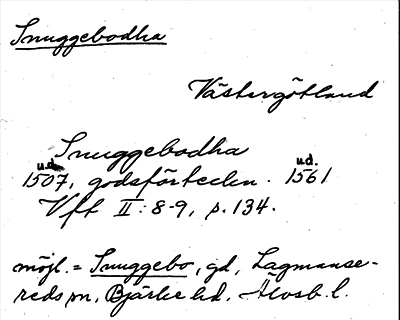 Snuggebodha
Västergötland
Snuggebodha
u.d. u.d.
1507, godsförteckn. 1561
Vft II: 8-9, p. 134.
möjl. = Snuggebo, gd, Lagmanse-
reds sn, Bjärke hd, Älvsb. l.